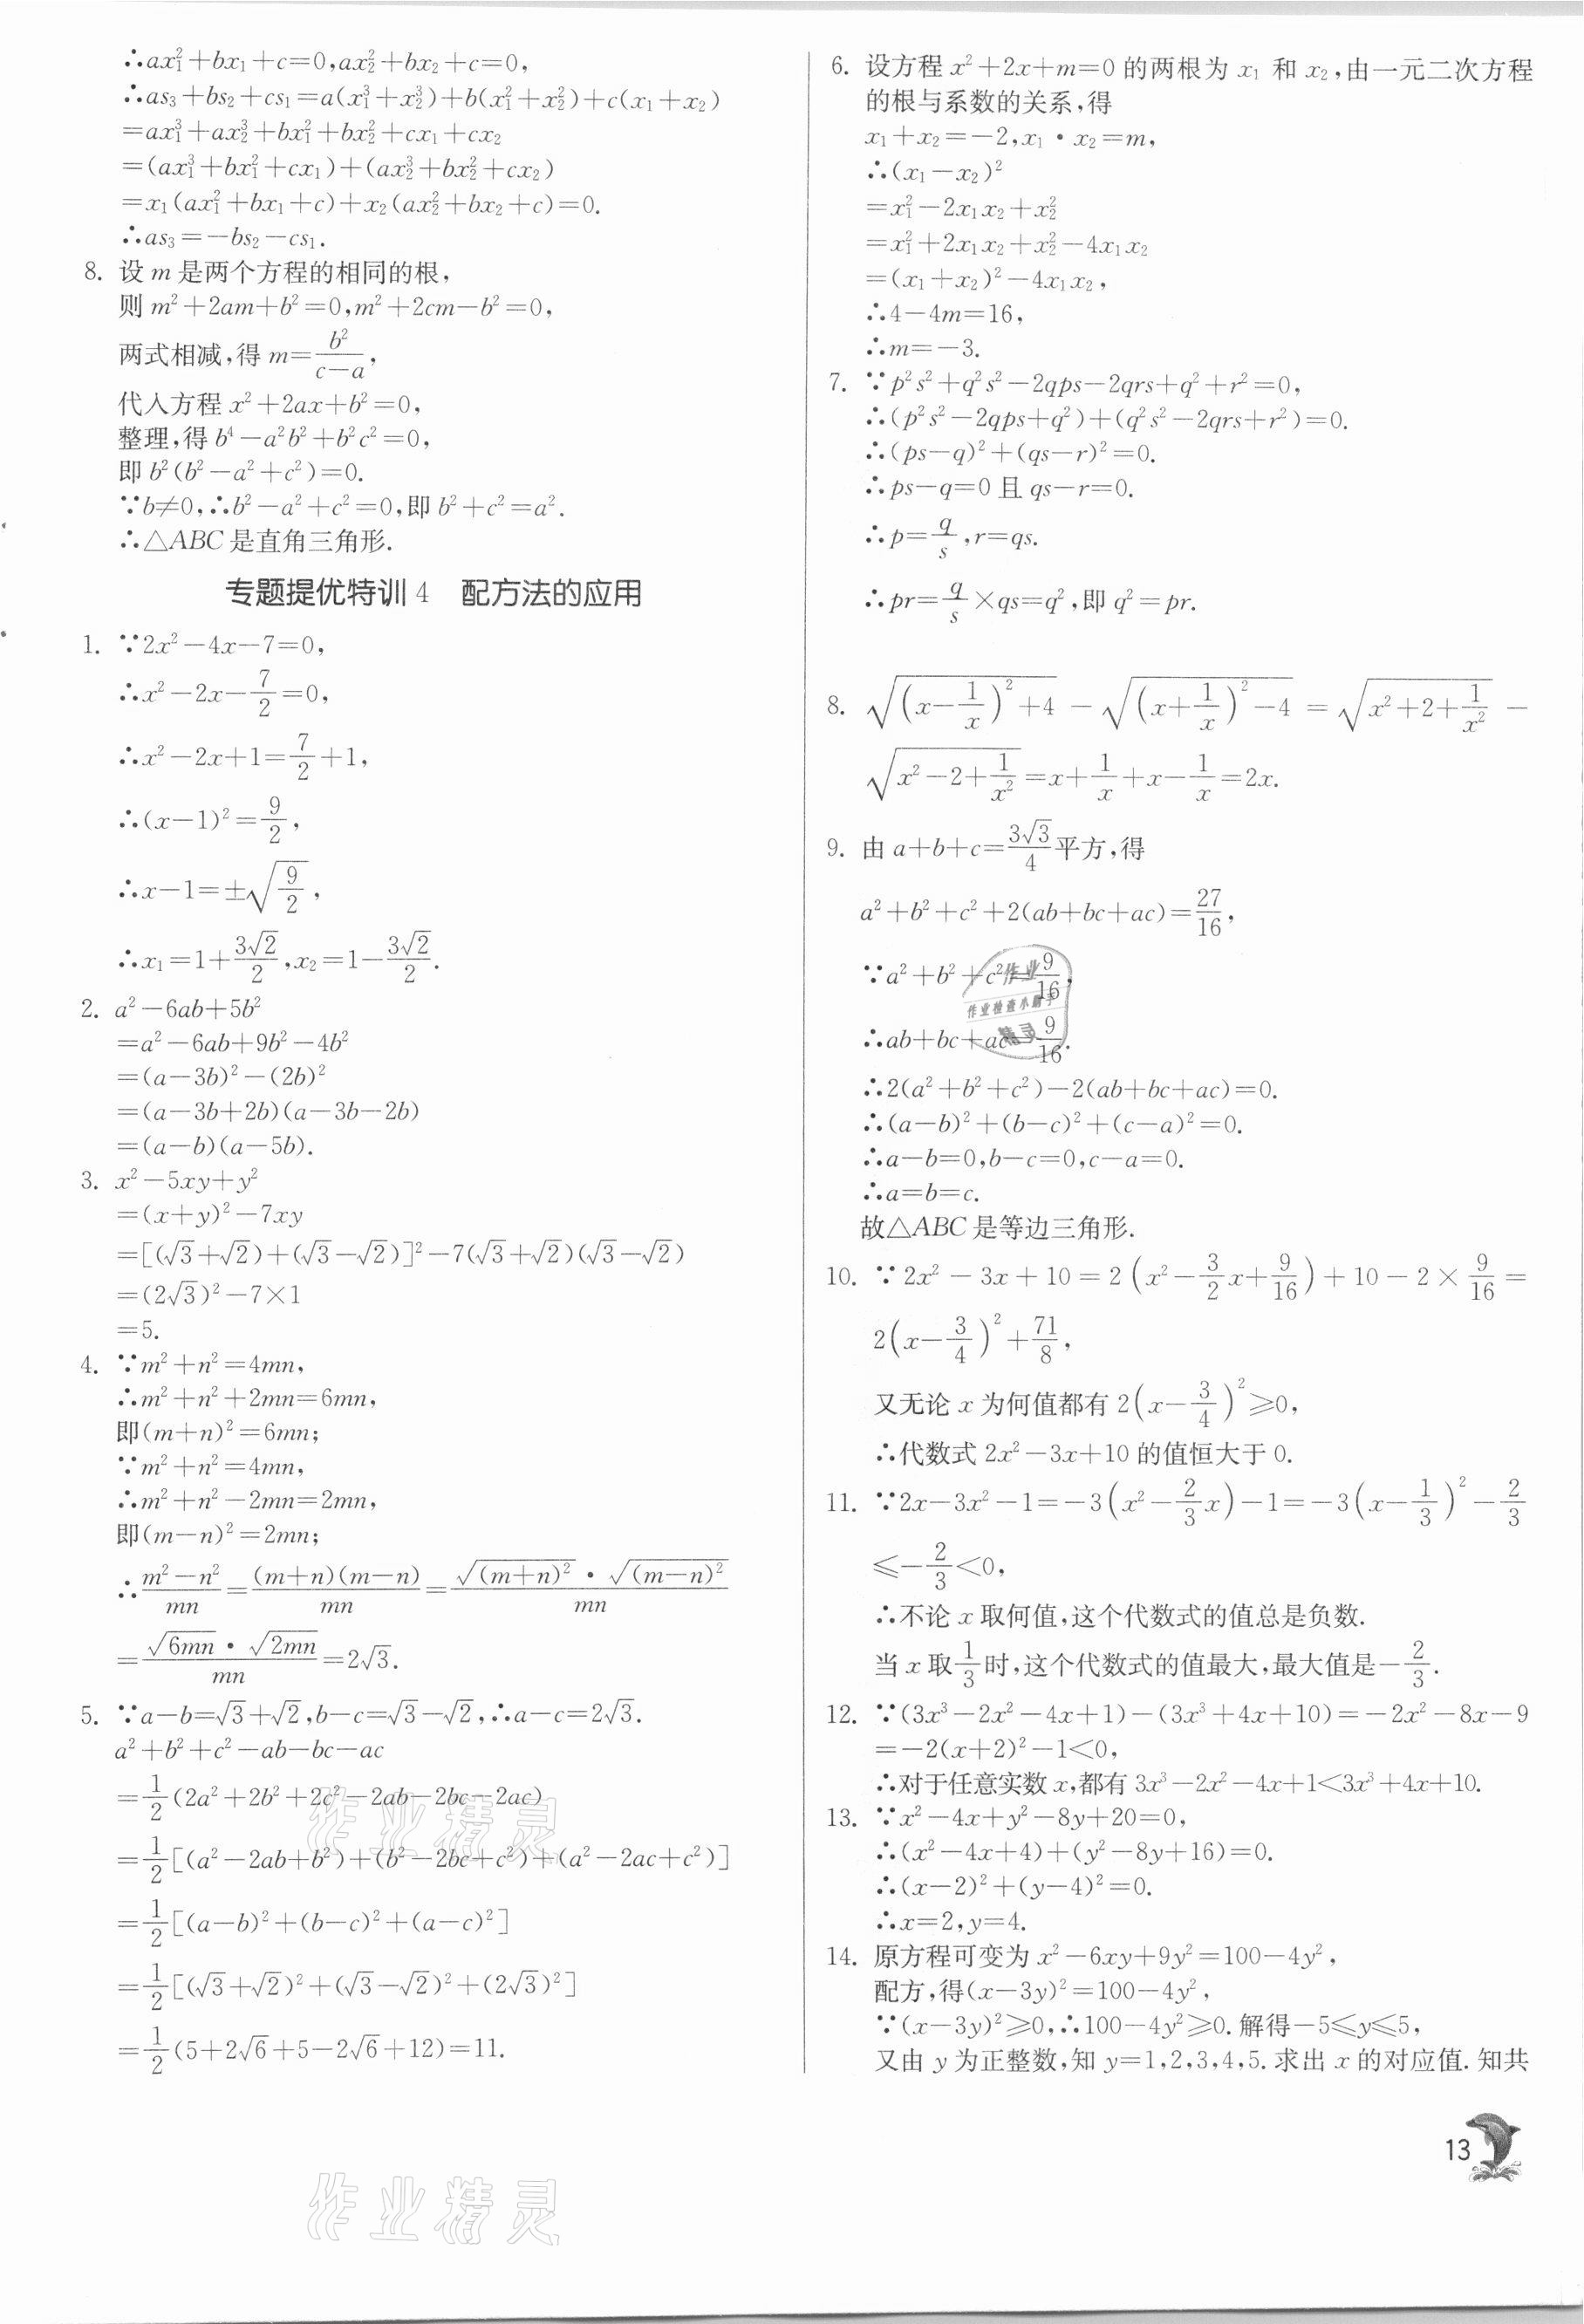 ∴ax₁²+bx₁+c=0,ax₂²+bx₂+c=0,
∴as₃+bs₂+cs₁=a(x₁³+x₂³)+b(x₁²+x₂²)+c(x₁+x₂)
=ax₁³+ax₂³+bx₁²+bx₂²+cx₁+cx₂
=(ax₁³+bx₁²+cx₁)+(ax₂³+bx₂²+cx₂)
=x₁(ax₁²+bx₁+c)+x₂(ax₂²+bx₂+c)=0.
∴as₃=-bs₂-cs₁.
8. 设 m 是两个方程的相同的根,
则 m²+2am+b²=0,m²+2cm-b²=0,
两式相减,得 m=b²/(c-a),
代入方程 x²+2ax+b²=0,
整理,得 b⁴-a²b²+b²c²=0,
即 b²(b²-a²+c²)=0.
∵b≠0,∴b²-a²+c²=0,即 b²+c²=a².
∴△ABC 是直角三角形.
专题提优特训 4 配方法的应用
1. ∵2x²-4x-7=0,
∴x²-2x-7/2=0,
∴x²-2x+1=7/2+1,
∴(x-1)²=9/2,
∴x-1=±√(9/2),
∴x₁=1+3√2/2,x₂=1-3√2/2.
2. a²-6ab+5b²
=a²-6ab+9b²-4b²
=(a-3b)²-(2b)²
=(a-3b+2b)(a-3b-2b)
=(a-b)(a-5b).
3. x²-5xy+y²
=(x+y)²-7xy
=[(√3+√2)+(√3-√2)]²-7(√3+√2)(√3-√2)
=(2√3)²-7×1
=5.
4. ∵m²+n²=4mn,
∴m²+n²+2mn=6mn,
即(m+n)²=6mn;
∵m²+n²=4mn,
∴m²+n²-2mn=2mn,
即(m-n)²=2mn;
∴(m²-n²)/mn=(m+n)(m-n)/mn=√(m+n)²·√(m-n)²/mn
=√6mn·√2mn/mn=2√3.
5. ∵a-b=√3+√2,b-c=√3-√2,∴a-c=2√3.
a²+b²+c²-ab-bc-ac
=1/2(2a²+2b²+2c²-2ab-2bc-2ac)
=1/2[(a²-2ab+b²)+(b²-2bc+c²)+(a²-2ac+c²)]
=1/2[(a-b)²+(b-c)²+(a-c)²]
=1/2[(√3+√2)²+(√3-√2)²+(2√3)²]
=1/2(5+2√6+5-2√6+12)=11.
6. 设方程 x²+2x+m=0 的两根为 x₁ 和 x₂,由一元二次方程
的根与系数的关系,得
x₁+x₂=-2,x₁·x₂=m,
∴(x₁-x₂)²
=x₁²-2x₁x₂+x₂²
=x₁²+2x₁x₂+x₂²-4x₁x₂
=(x₁+x₂)²-4x₁x₂,
∴4-4m=16,
∴m=-3.
7. ∵p²s²+q²s²-2qps-2qrs+q²+r²=0,
∴(p²s²-2qps+q²)+(q²s²-2qrs+r²)=0.
∴(ps-q)²+(qs-r)²=0.
∴ps-q=0 且 qs-r=0.
∴p=q/s,r=qs.
∴pr=q/s×qs=q²,即 q²=pr.
8. √((x-1/x)²+4) - √((x+1/x)²-4) = √(x²+2+1/x²) -
√(x²-2+1/x²)=x+1/x+x-1/x=2x.
9. 由 a+b+c=3√3/4平方,得
a²+b²+c²+2(ab+bc+ac)=27/16,
∵a²+b²+c²=9/16,
∴ab+bc+ac=9/16.
∴2(a²+b²+c²)-2(ab+bc+ac)=0.
∴(a-b)²+(b-c)²+(c-a)²=0.
∴a-b=0,b-c=0,c-a=0.
∴a=b=c.
故△ABC 是等边三角形.
10. ∵2x²-3x+10=2(x²-3/2x+9/16)+10-2×9/16=
2(x-3/4)²+71/8,
又无论 x 为何值都有 2(x-3/4)²≥0,
∴代数式 2x²-3x+10 的值恒大于 0.
11. ∵2x-3x²-1=-3(x²-2/3x)-1=-3(x-1/3)²-2/3
≤-2/3<0,
∴不论 x 取何值,这个代数式的值总是负数.
当 x 取1/3时,这个代数式的值最大,最大值是-2/3.
12. ∵(3x³-2x²-4x+1)-(3x³+4x+10)=-2x²-8x-9
=-2(x+2)²-1<0,
∴对于任意实数 x,都有 3x³-2x²-4x+1<3x³+4x+10.
13. ∵x²-4x+y²-8y+20=0,
∴(x²-4x+4)+(y²-8y+16)=0.
∴(x-2)²+(y-4)²=0.
∴x=2,y=4.
14. 原方程可变为 x²-6xy+9y²=100-4y²,
配方,得(x-3y)²=100-4y²,
∵(x-3y)²≥0,∴100-4y²≥0.解得-5≤y≤5,
又由 y 为正整数,知 y=1,2,3,4,5.求出 x 的对应值.知共
13
作业
作业检查小助手
精灵
作业精灵
作业精灵